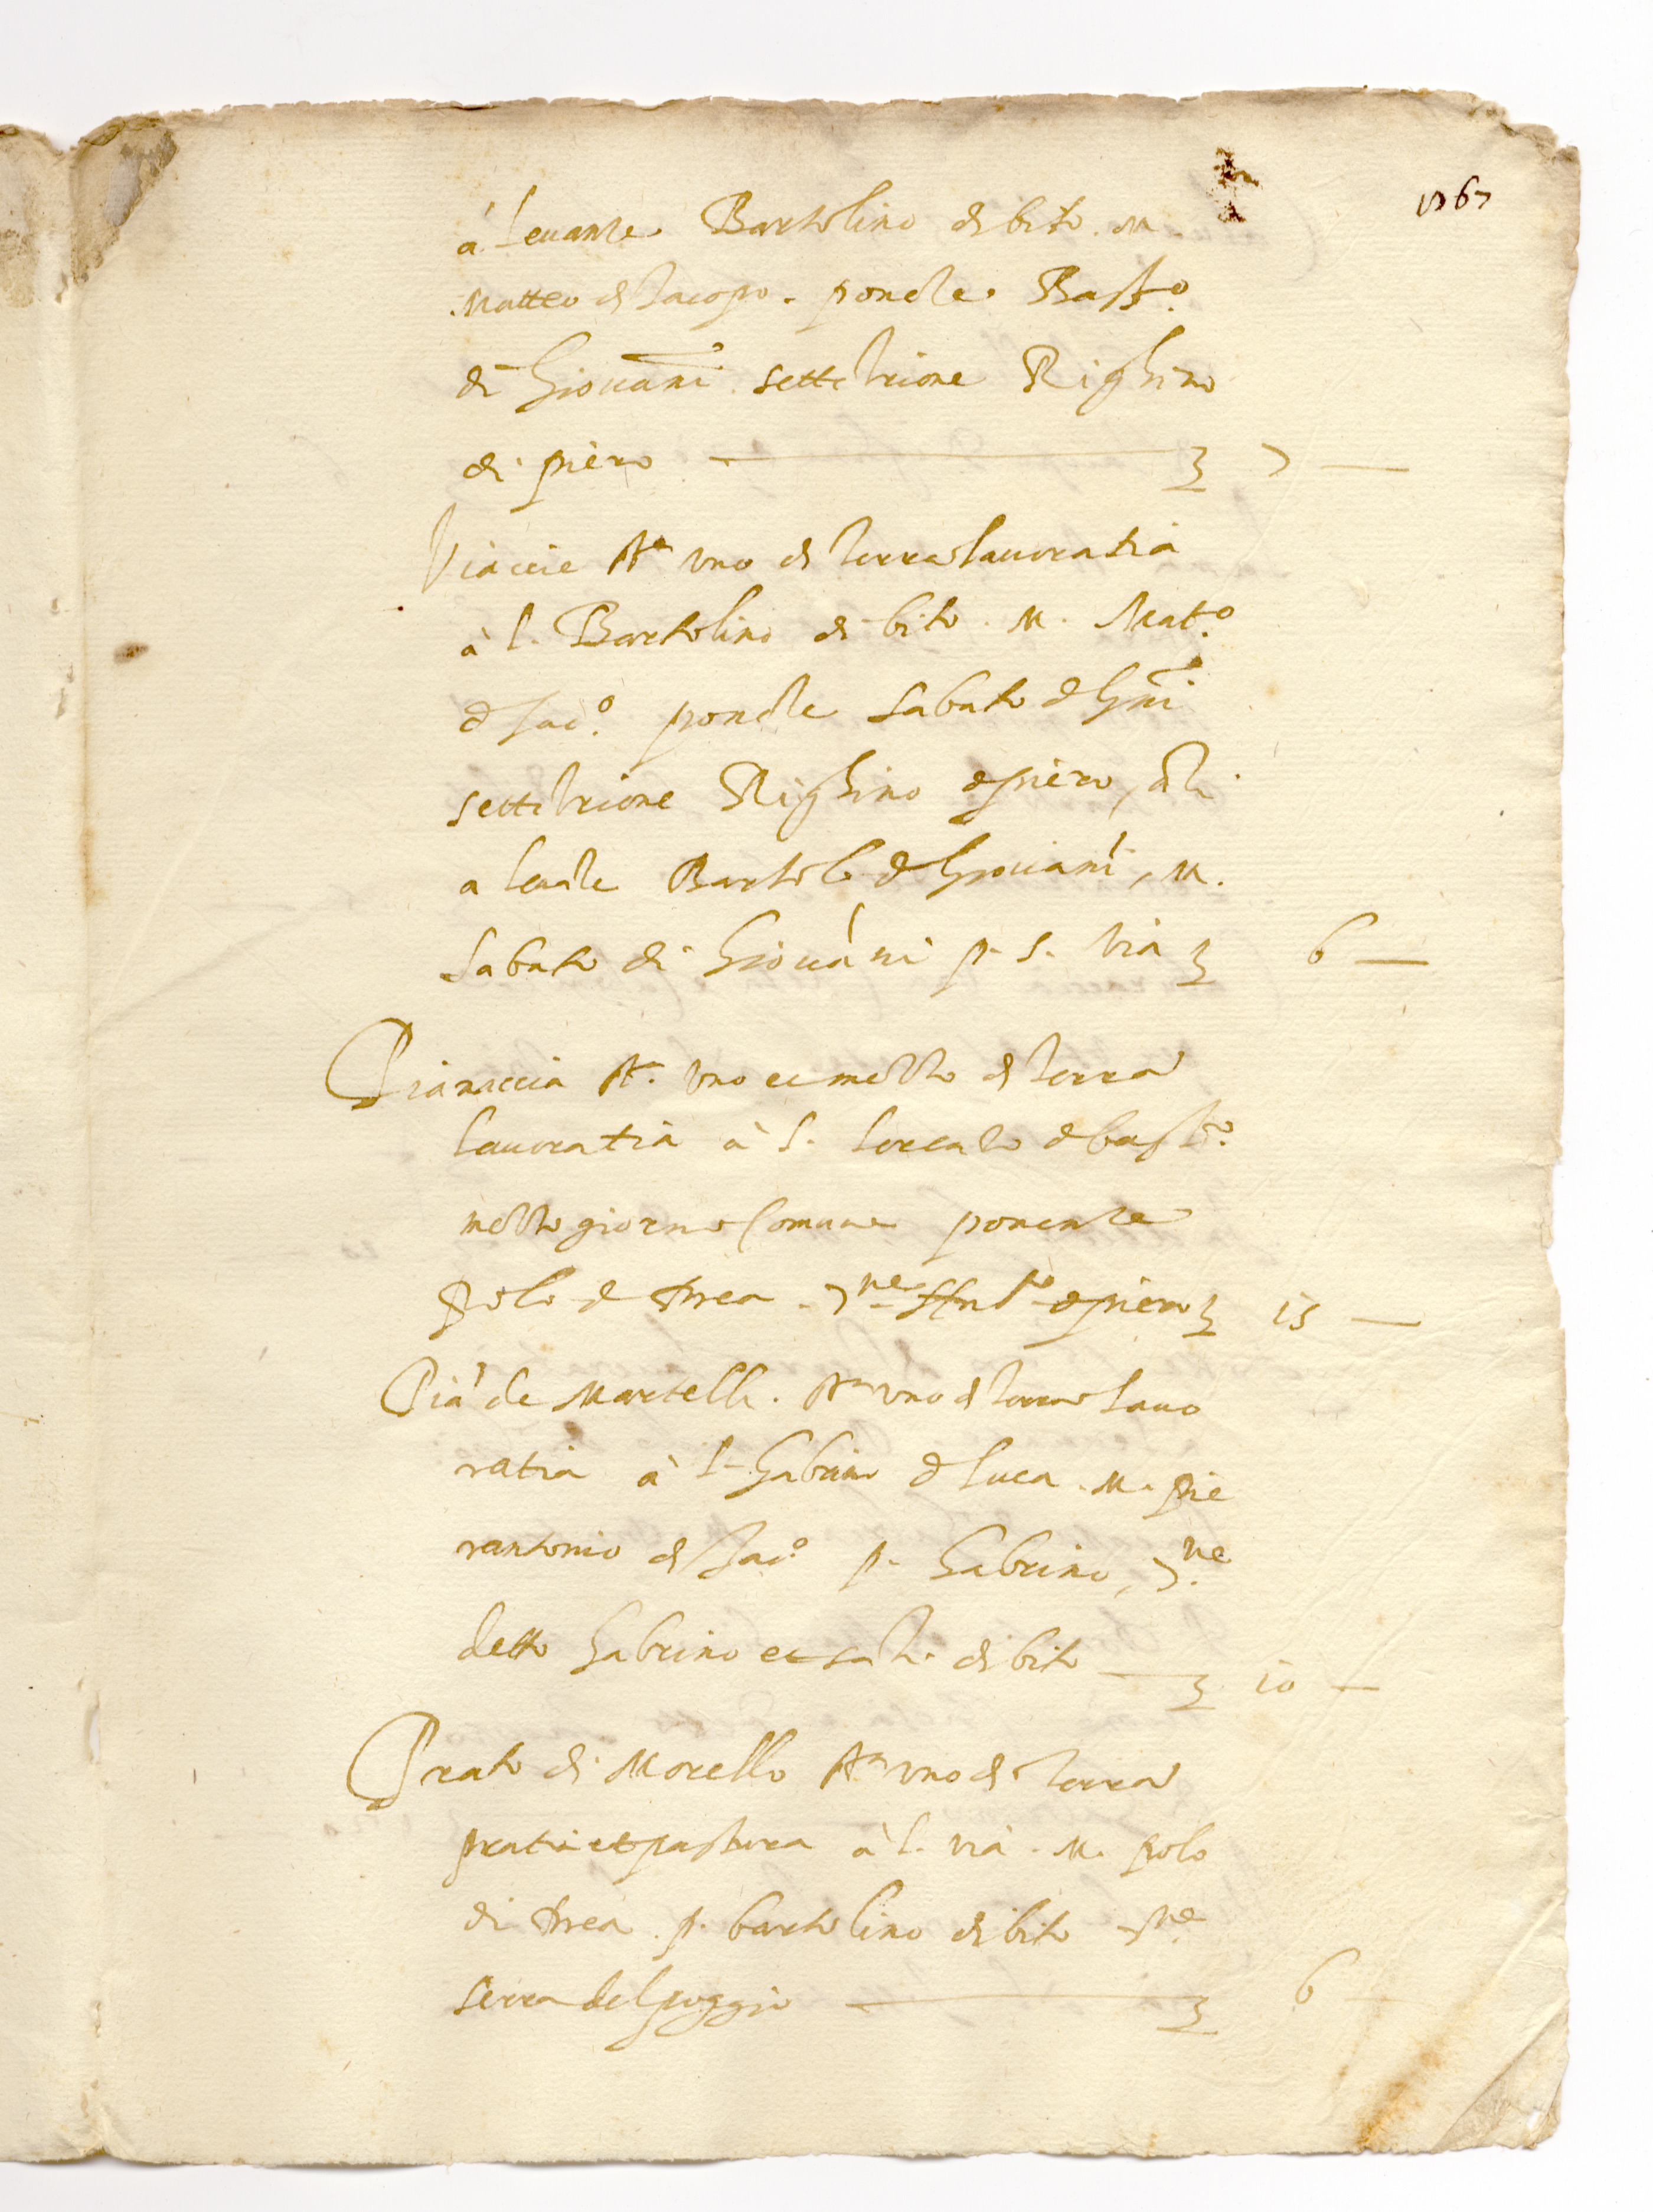 1767
à Levante Bartolino di bito. M.
Matteo di Jacopo. pon̄te Bast.o
di Giouāni settētrione Righino
di piero ——— ʒ 7 —
Viaccie st.a uno di terra lauoratia
à l. Bartolino di bito. M. Mat.o
di Jac.o ponēte Sabato di Gni
settētrione Righino di piero,
a leuāte Bartolo di Giouāni, M.
Sabato di Giouāni p. s. via ʒ 6 —
Pianaccia st. uno et mezzo di terra
lauoratia à l. di bast.o
mezzo giorno Comune ponente
polo di Drea. 7ne di piero ʒ 15 —
Piā de Martelli. st.a uno di terra lauo
ratia à l. Gabrino di luca. M. pie
rantonio di Jac.o p. Gabrino, 7.ne
detto Gabrino et di bito — ʒ 10 —
Prato di Morello st.a uno di terra
pratia et pastura à l. via. M. polo
di Drea. p. bartolino di bito 7ne
serra del poggio ——— ʒ 6 —